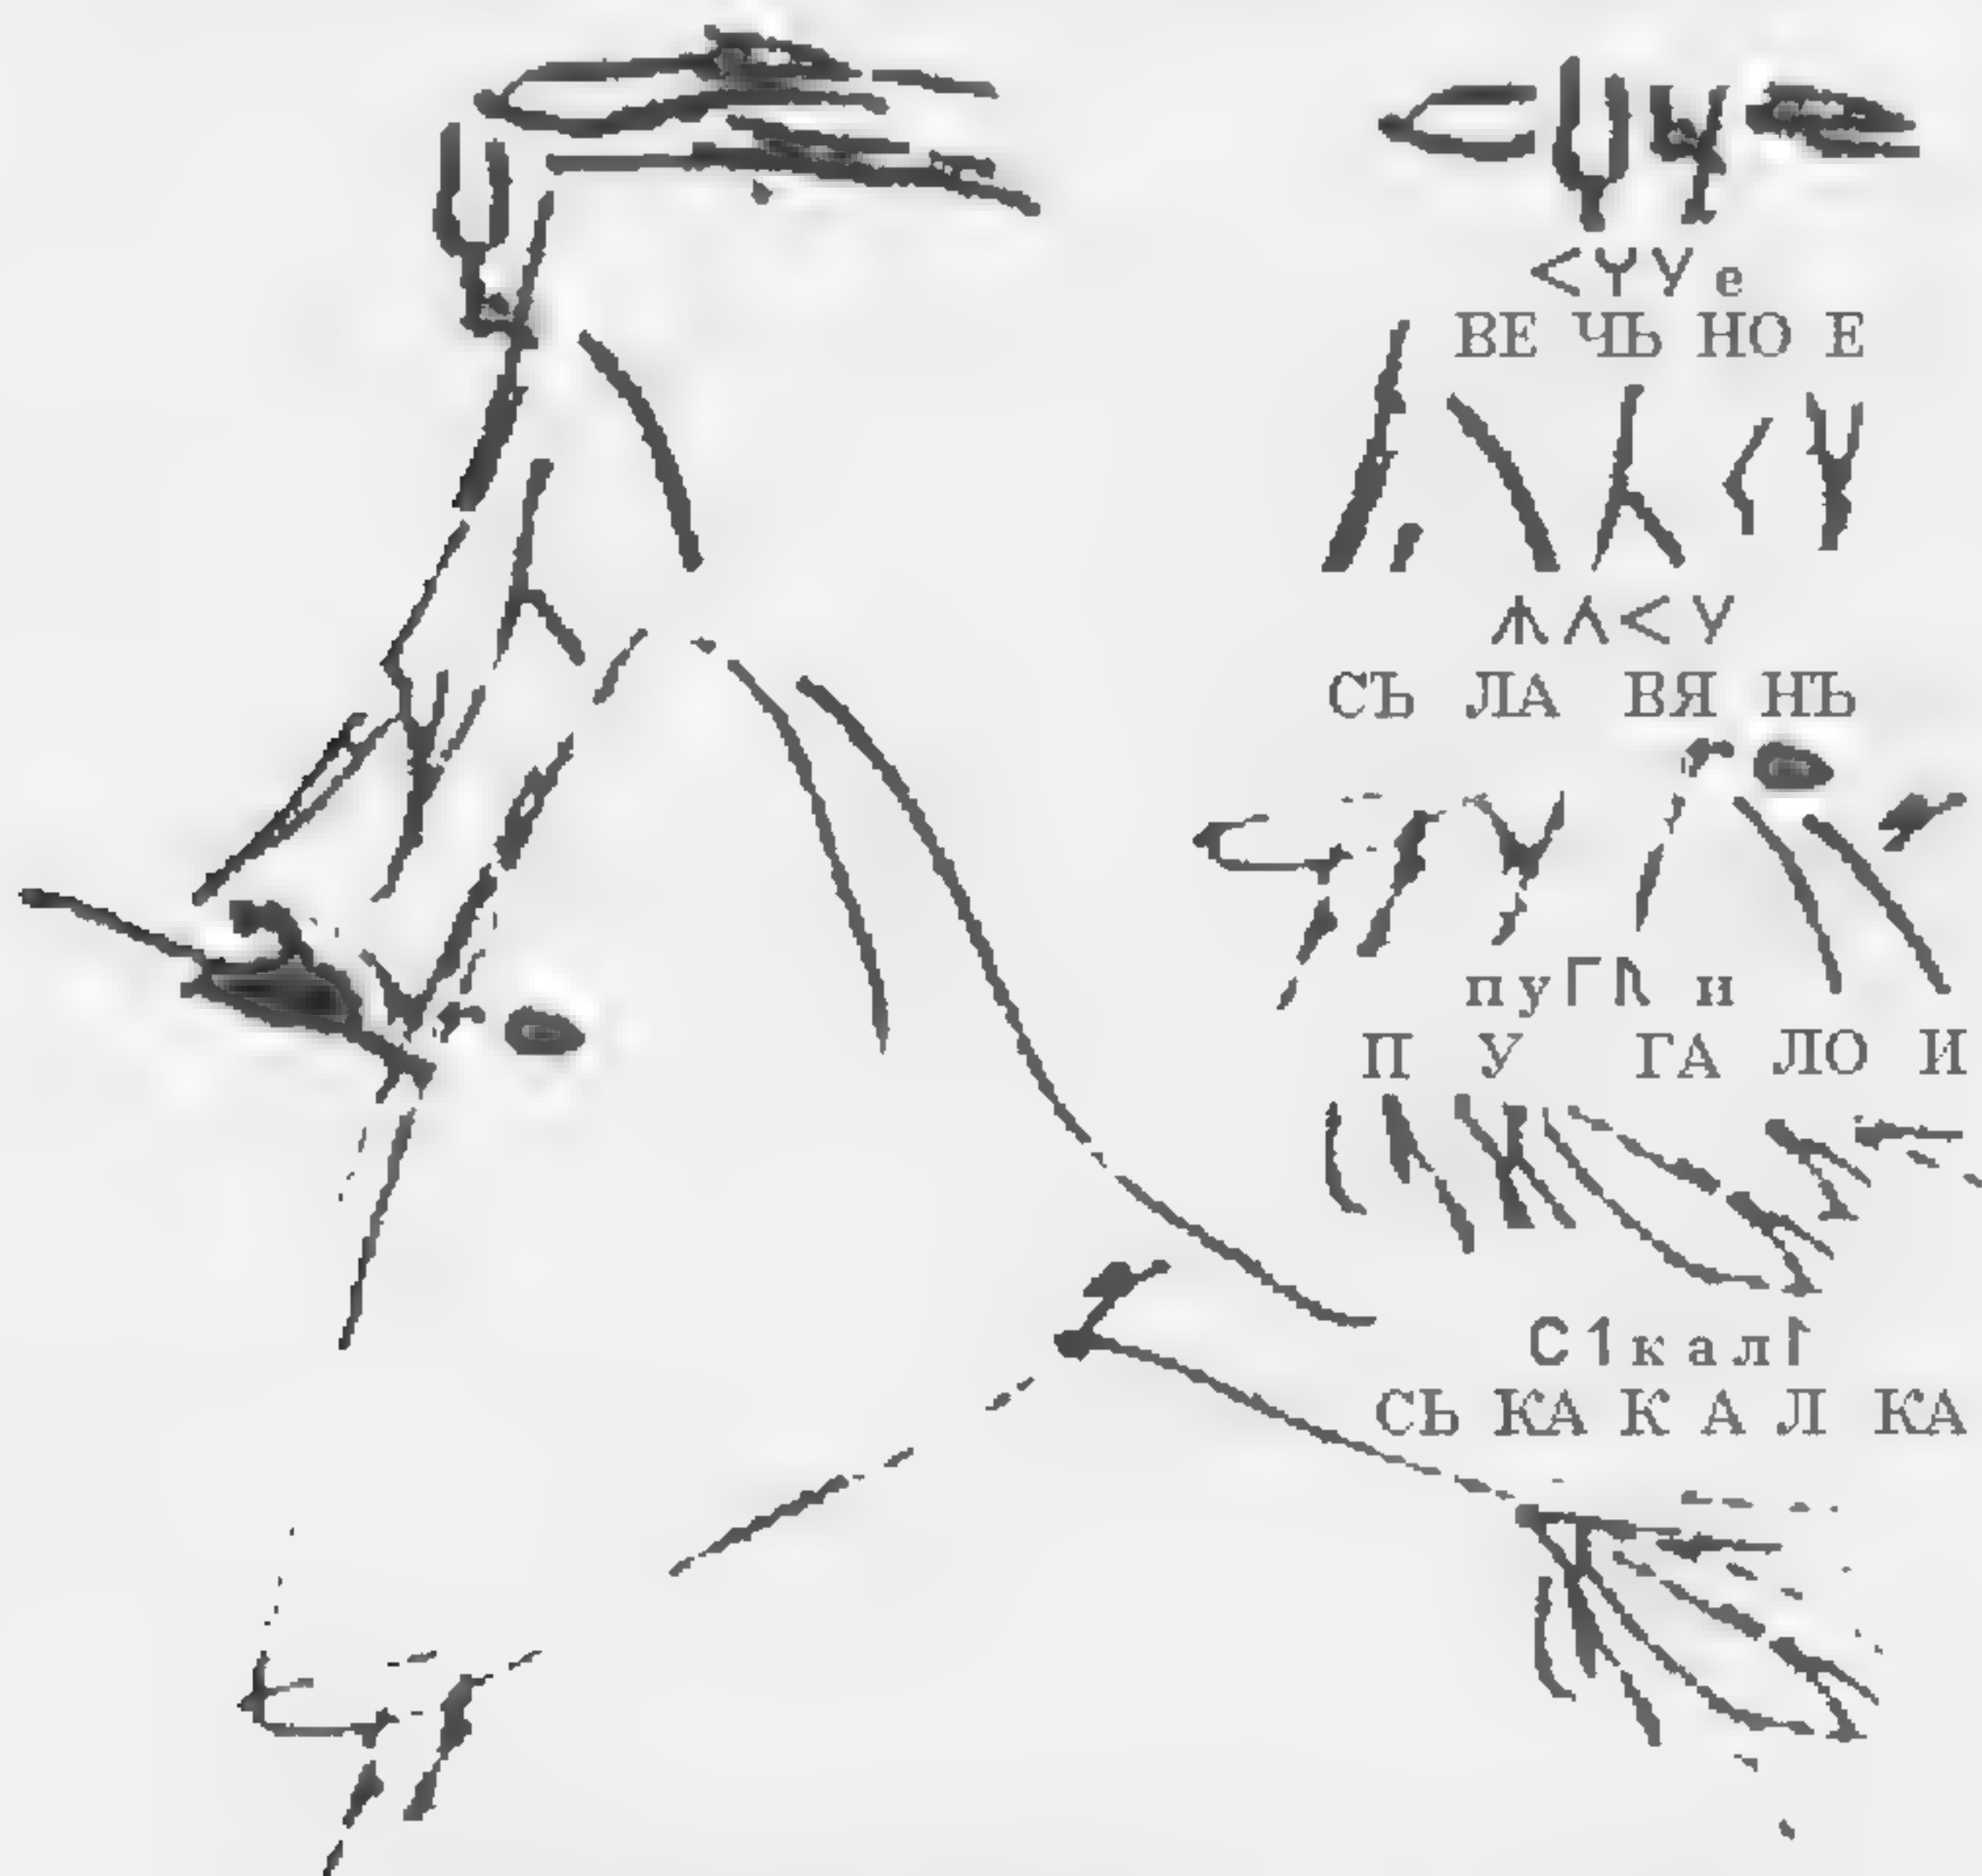 <YУе
ВЕ ЧЬ НО Е
СЪ ЛА ВЯ НЪ
пуГ и
П У ГА ЛО И
С1кал↾
СЬ КА К А Л КА